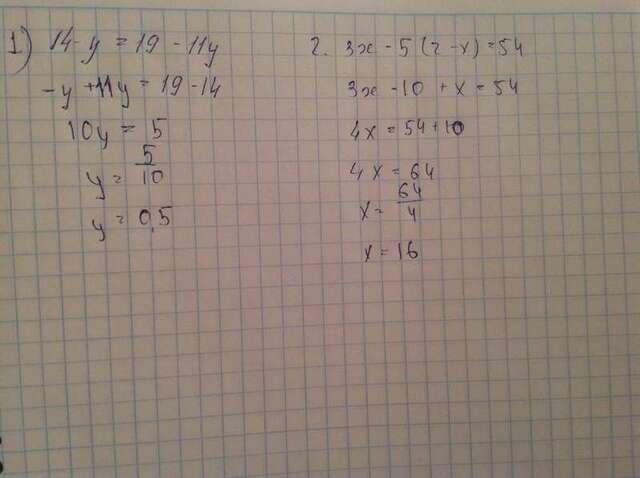 1) 14-y = 19 - 11y
-y + 11y = 19 - 14
10y = 5
y = 5/10
y = 0,5
2. 3x - 5(2-x) = 54
3x - 10 + x = 54
4x = 54 + 10
4x = 64
x = 64/4
x = 16